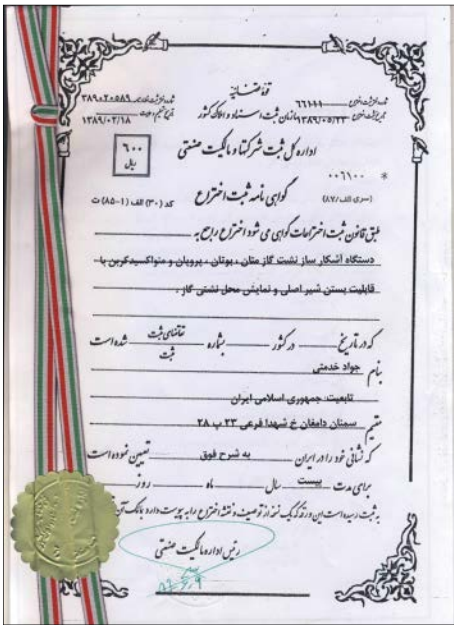 قوه قضائیه
شماره ثبت اختراع ۶۶۱۰۰
تاریخ ثبت اختراع ۱۳۸۹/۰۵/۲۳
سازمان ثبت اسناد و املاک کشور
۳۸۹۰۲۰۵۸۹
۱۳۸۹/۰۲/۱۸
اداره کل ثبت شرکتها و مالکیت صنعتی
۶۰۰ ریال
* ۰۰۶۱۰۰
(سری الف/۸۷)
گواهی نامه ثبت اختراع
کد (۳۰) الف (۱-۸۵) ت
طبق قانون ثبت اختراعات گواهی می شود اختراع راجع به
دستگاه آشکار ساز نشت گاز متان ، بوتان ، پروپان و منواکسیدکربن با
قابلیت بستن شیر اصلی و نمایش محل نشتی گاز .
که در تاریخ در کشور بشماره تقاضای ثبت شده است
ثبت
بنام جواد خدمتی
تابعیت: جمهوری اسلامی ایران
مقیم سمنان دامغان خ شهدا فرعی ۲۳ پ ۲۸
که نشانی خود را در ایران به شرح فوق تعیین نموده است
برای مدت بیست سال ماه روز
به ثبت رسیده است این ورقه که یک نسخه از توصیف و نقشه اختراع را به پیوست دارد بمالک آن
رئیس اداره مالکیت صنعتی